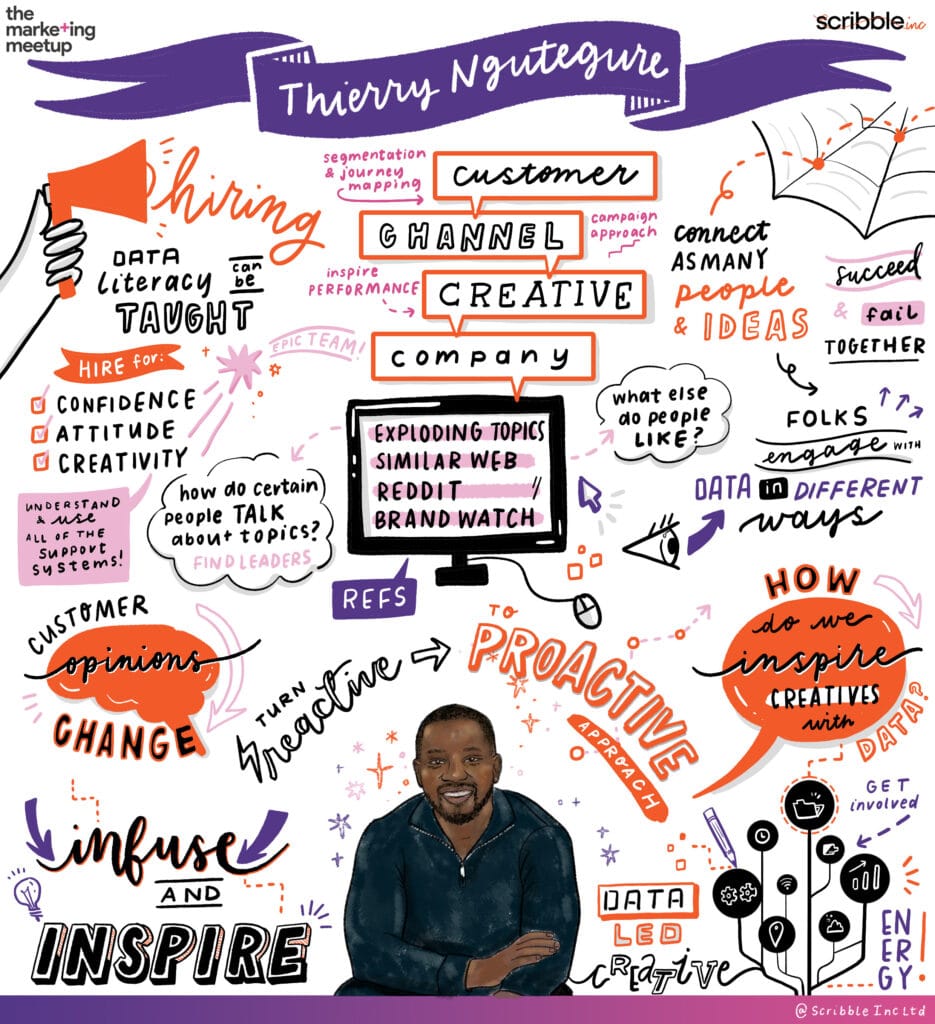 the
marke+ing
meetup
scribble.inc
Thierry Ngutegure
hiring
DATA
literacy
can
be
TAUGHT
HIRE for:
CONFIDENCE
ATTITUDE
CREATIVITY
EPIC TEAM!
UNDERSTAND
& use
ALL OF THE
SUPPORT
SYSTEMS!
segmentation
& journey
mapping
customer
CHANNEL
campaign
approach
inspire
PERFORMANCE
CREATIVE
company
EXPLODING TOPICS
SIMILAR WEB
REDDIT
BRAND WATCH
REFS
how do certain
people TALK
about topics?
FIND LEADERS
what else
do people
LIKE?
connect
AS MANY
people
& IDEAS
succeed
& fail
TOGETHER
FOLKS
engage WITH
DATA in DIFFERENT
ways
CUSTOMER
opinions
CHANGE
TURN
reactive
TO
PROACTIVE
APPROACH
HOW
do we
inspire
CREATIVES
with
DATA?
infuse
AND
INSPIRE
DATA
LED
CREATIVE
GET
involved
EN
ER
GY!
@ Scribble Inc Ltd